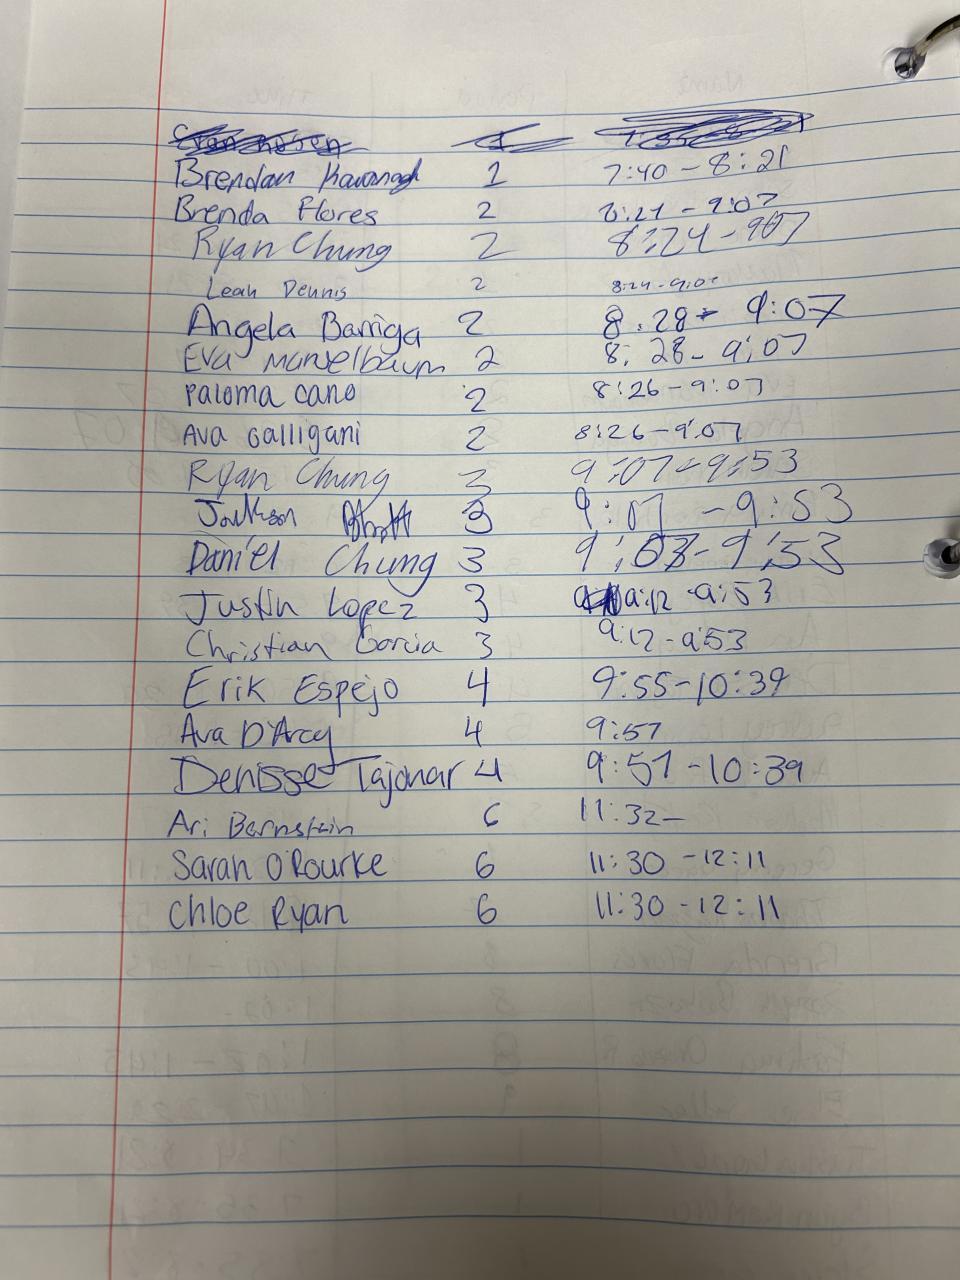 Brendan Kavanagh 1 7:40 - 8:21
Brenda Flores 2 8:21 - 9:07
Ryan Chung 2 8:24 - 907
Leah Dennis 2 8:24 - 9:07
Angela Barriga 2 8:28 - 9:07
Eva Mandelbaum 2 8:28 - 9:07
Paloma cano 2 8:26 - 9:07
Ava Galligani 2 8:26 - 9:07
Ryan Chung 3 9:07 - 9:53
Jackson 3 9:07 - 9:53
Daniel Chung 3 9:03 - 9:53
Justin Lopez 3 9:12 - 9:53
Christian Garcia 3 9:12 - 9:53
Erik Espejo 4 9:55 - 10:39
Ava D'Arcy 4 9:57
Denisse Tajonar 4 9:57 - 10:39
Ari Bernstein 6 11:32 -
Sarah O'Rourke 6 11:30 - 12:11
Chloe Ryan 6 11:30 - 12:11